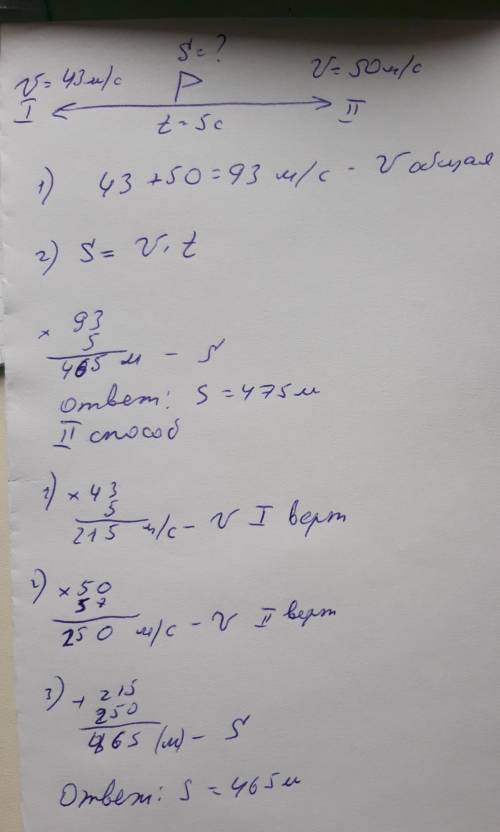 S = ?
V = 43 м/с
V = 50 м/с
I
II
t = 5с
1) 43 + 50 = 93 м/с - V общая
2) S = V · t
× 93
5
465 м - S
Ответ: S = 475 м
II способ
1) × 43
5
215 м/с - V I верт
2) × 50
5
250 м/с - V II верт
3) + 215
250
465 (м) - S
Ответ: S = 465 м